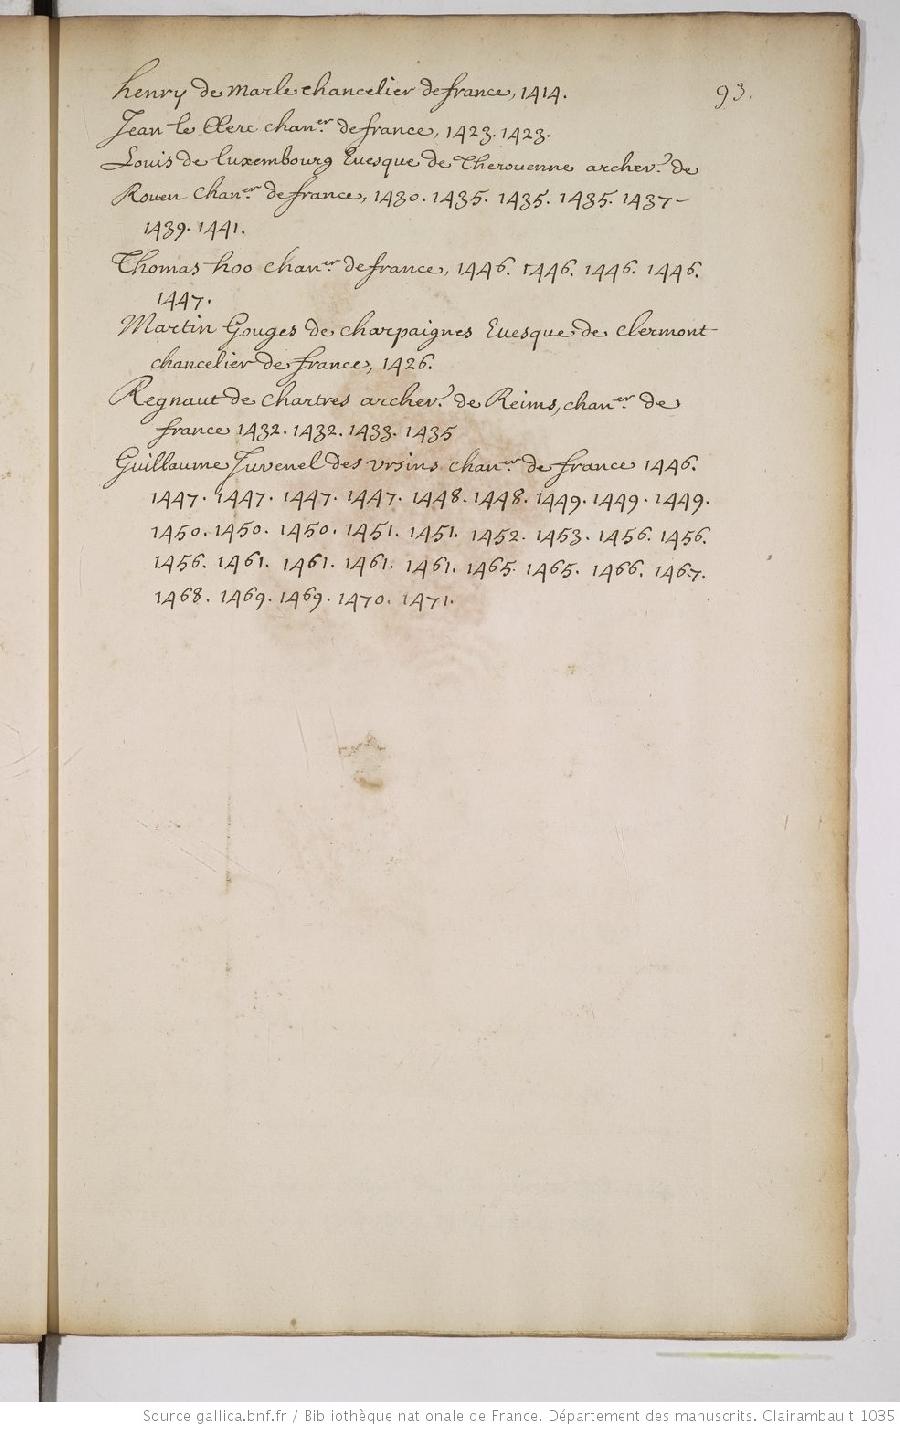 henry de Marle chancelier de france, 1414.
93.
Jean le Clerc chan.er de france, 1423. 1423.
Louis de luxembourg Evesque de Therouenne archev.e de
Rouen chan.er de france, 1430. 1435. 1435. 1435. 1437-
1439. 1441.
Thomas hoo chan.er de france, 1446. 1446. 1446. 1446.
1447.
Martin Gouges de charpaignes Evesque de clermont
chancelier de france, 1426.
Regnaut de chartres archev.e de Reims, chan.er de
france 1432. 1432. 1433. 1435
Guillaume Juvenel des ursins chan.er de france 1446.
1447. 1447. 1447. 1447. 1448. 1448. 1449. 1449. 1449.
1450. 1450. 1450. 1451. 1451. 1452. 1453. 1456. 1456.
1456. 1461. 1461. 1461. 1461. 1465. 1465. 1466. 1467.
1468. 1469. 1469. 1470. 1471.
Source gallica.bnf.fr / Bibliothèque nationale de France. Département des manuscrits. Clairambault 1035